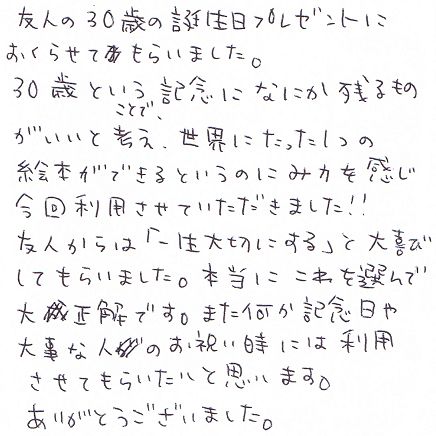 友人の30歳の誕生日プレゼントに
おくらせてもらいました。
30歳という記念になにか残るもの
ことで、
がいいと考え、世界にたった1つの
絵本ができるというのにみ力を感じ
今回利用させていただきました!!
友人からは「一生大切にする」と大喜び
してもらいました。本当にこれを選んで
大正解です。また何か記念日や
大事な人のお祝い時には利用
させてもらいたいと思います。
ありがとうございました。